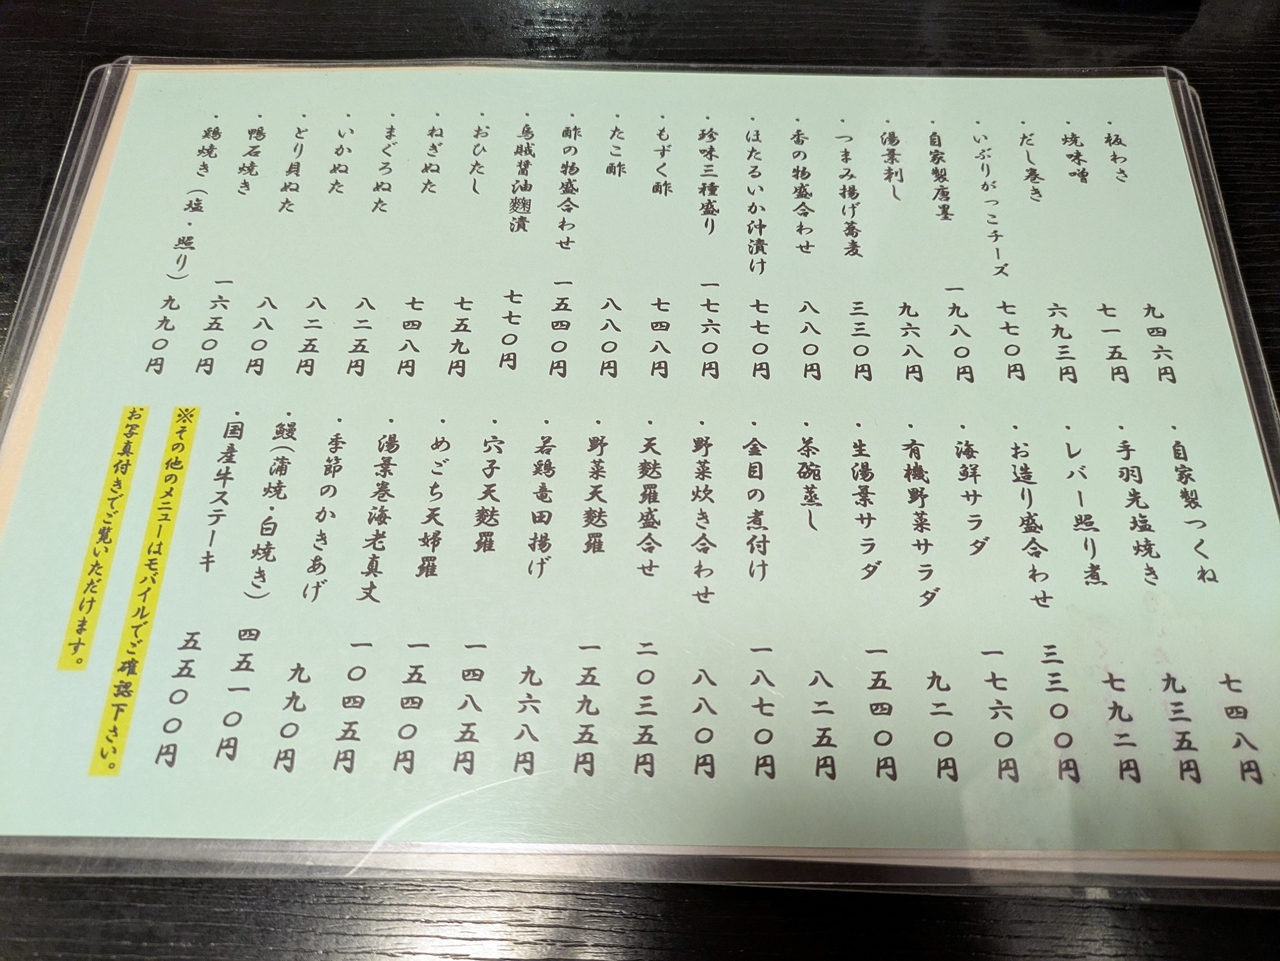 ・板わさ 九四六円
・焼味噌 七一五円
・だし巻き 六九三円
・いぶりがっこチーズ 七七〇円
・自家製唐墨 一九八〇円
・湯葉刺し 九六八円
・つまみ揚げ蕎麦 三三〇円
・香の物盛合わせ 八八〇円
・ほたるいか沖漬け 七七〇円
・珍味三種盛り 一七六〇円
・もずく酢 七四八円
・たこ酢 八八〇円
・酢の物盛合わせ 一五四〇円
・烏賊醤油麹漬 七七〇円
・おひたし 七五九円
・ねぎぬた 七四八円
・まぐろぬた 八二五円
・いかぬた 八二五円
・とり貝ぬた 八八〇円
・鴨石焼き 一六五〇円
・鶏焼き(塩・照り) 九九〇円
・自家製つくね 七四八円
・手羽先塩焼き 九三五円
・レバー照り煮 七九二円
・お造り盛合わせ 三三〇〇円
・海鮮サラダ 一七六〇円
・有機野菜サラダ 九二〇円
・生湯葉サラダ 一五四〇円
・茶碗蒸し 八二五円
・金目の煮付け 一八七〇円
・野菜炊き合わせ 八八〇円
・天麩羅盛合せ 二〇三五円
・野菜天麩羅 一五九五円
・若鶏竜田揚げ 九六八円
・穴子天麩羅 一四八五円
・めごち天婦羅 一五四〇円
・湯葉巻海老真丈 一〇四五円
・季節のかきあげ 九九〇円
・鰻(蒲焼・白焼き) 四五一〇円
・国産牛ステーキ 五五〇〇円
※その他のメニューはモバイルでご確認下さい。
お写真付きでご覧いただけます。